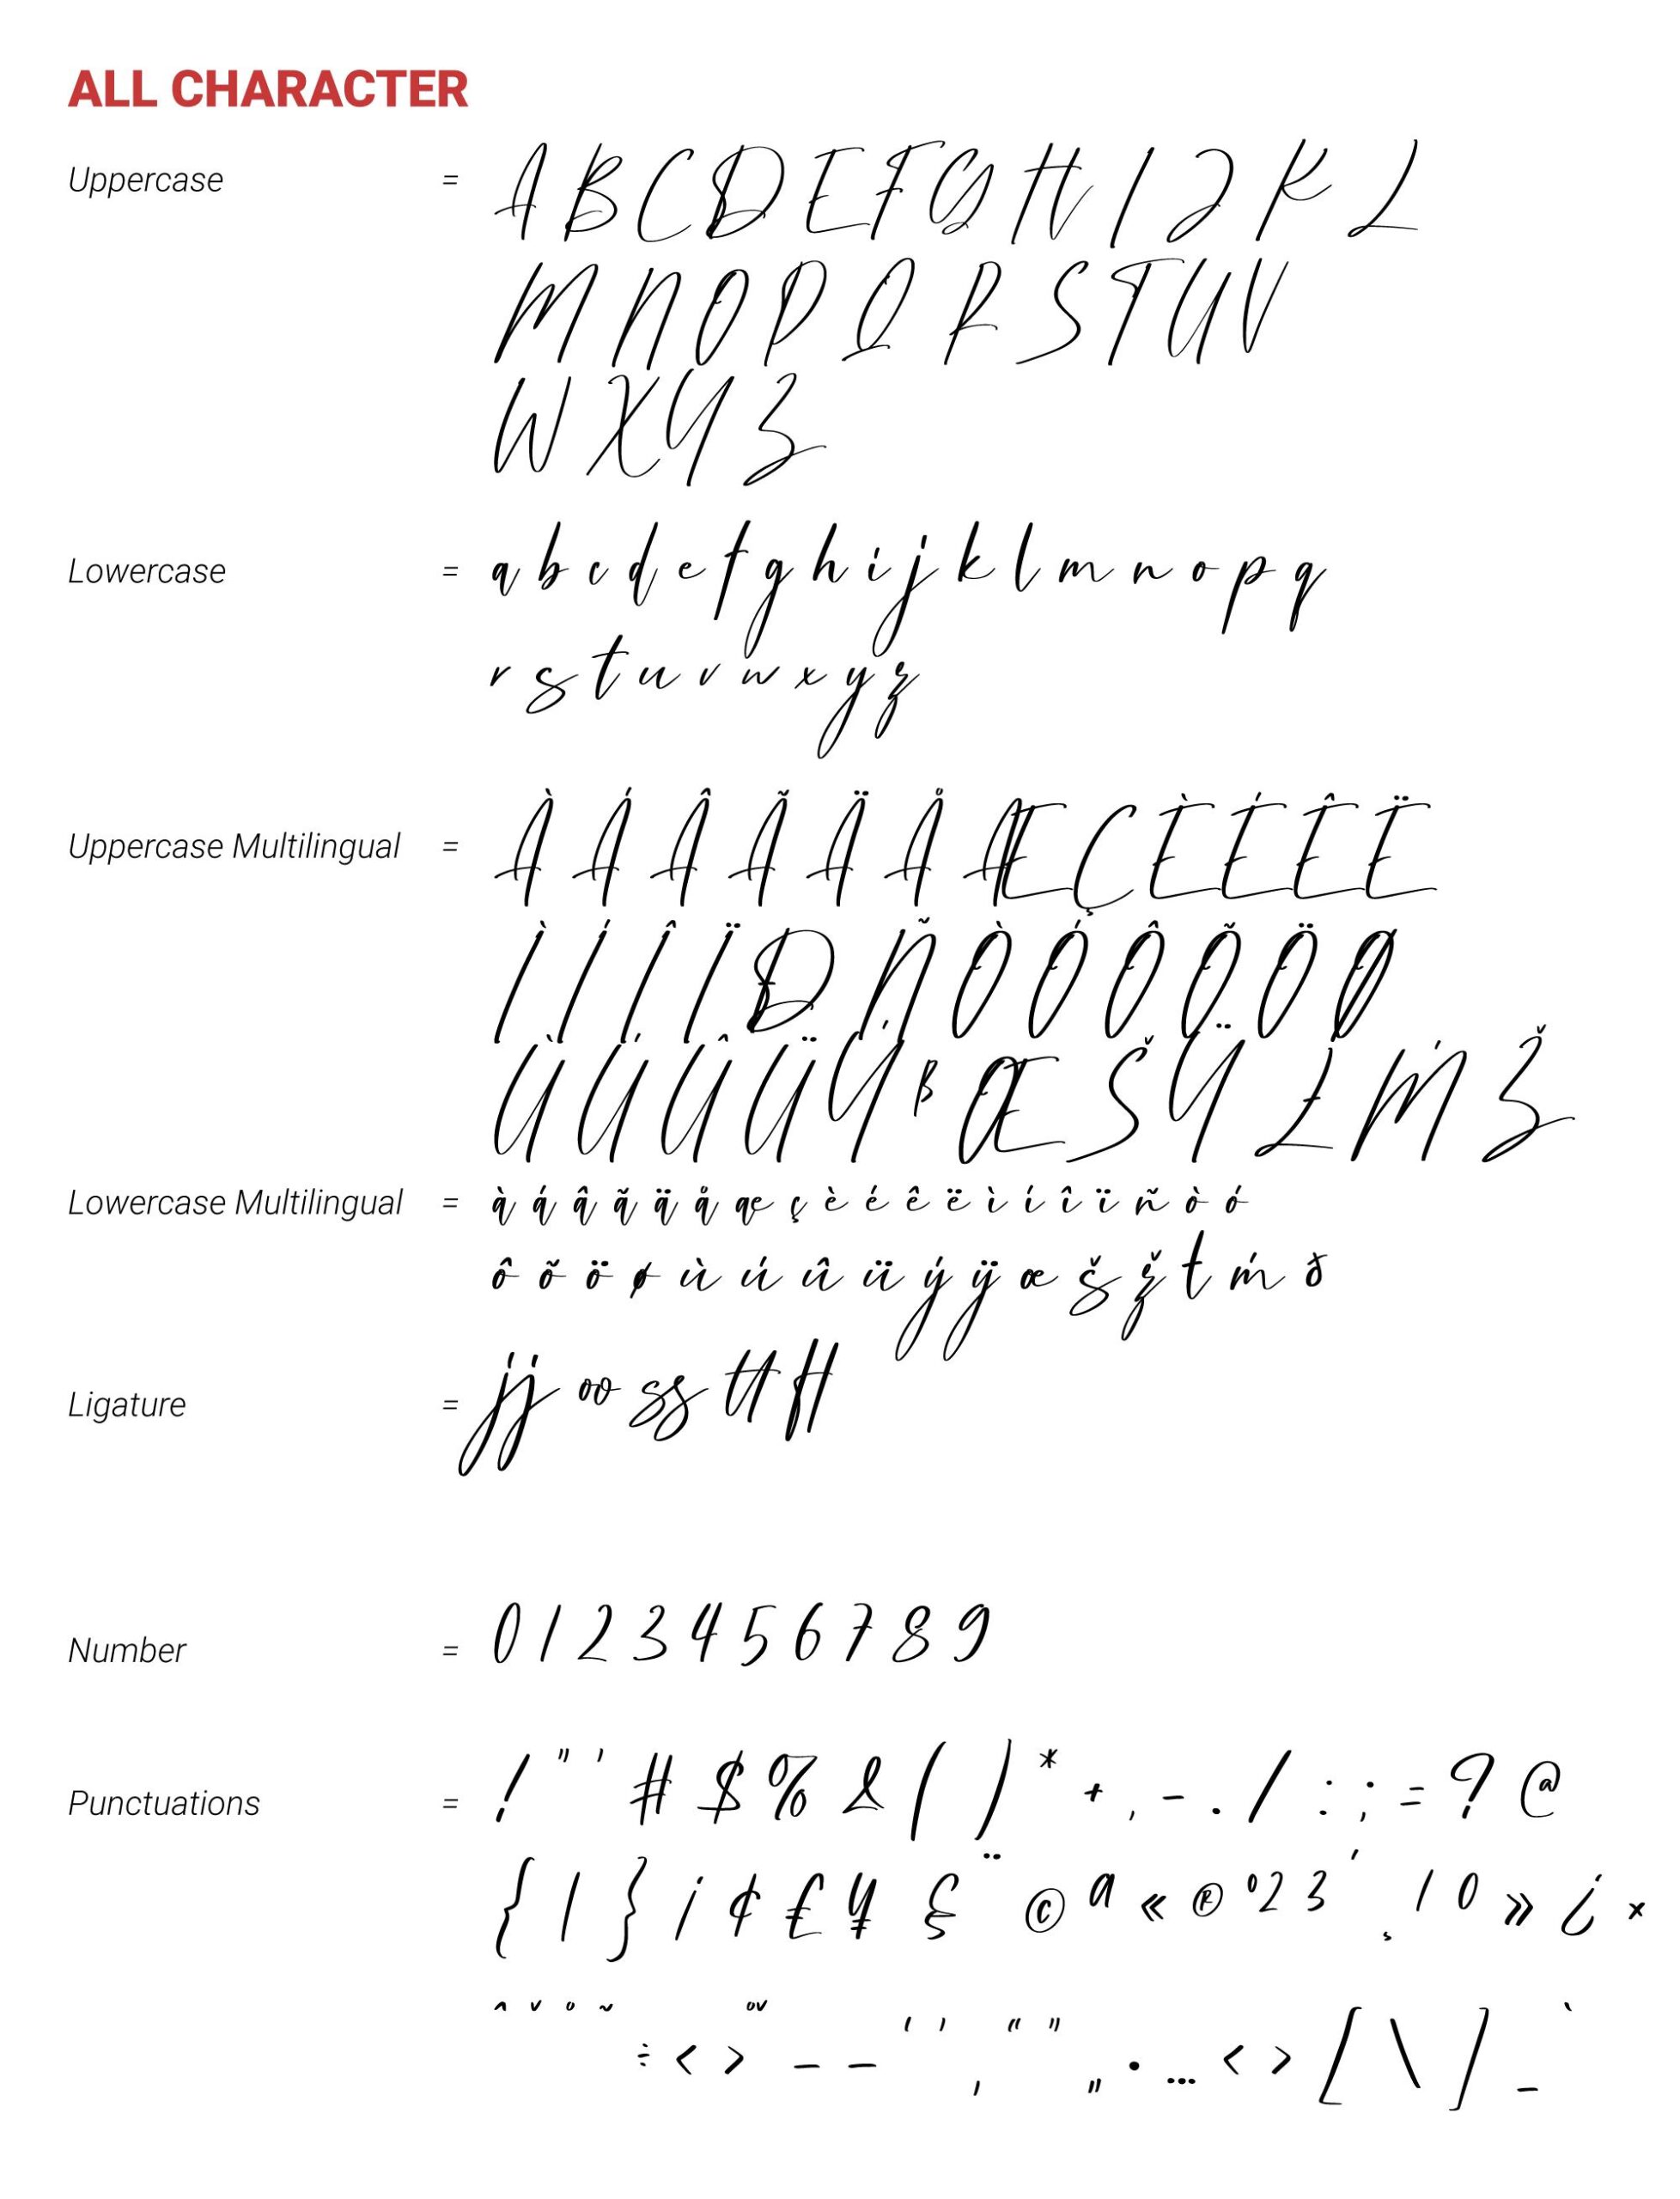 ALL CHARACTER
Uppercase = A B C D E F G H I J K L
M N O P Q R S T U V
W X Y Z
Lowercase = a b c d e f g h i j k l m n o p q
r s t u v w x y z
Uppercase Multilingual = À Á Â Ã Ä Å Æ Ç È É Ê Ë
Ì Í Î Ï Ð Ñ Ò Ó Ô Õ Ö Ø
Ù Ú Û Ü Ý ß Œ Š Ÿ Ł Ḿ Ž
Lowercase Multilingual = à á â ã ä å æ ç è é ê ë ì í î ï ñ ò ó
ô õ ö ø ù ú û ü ý ÿ œ š ž ł ḿ ð
Ligature = jj oo ss tt ft
Number = 0 1 2 3 4 5 6 7 8 9
Punctuations = ! " ' # $ % & ( ) * + , - . / : ; = ? @
{ | } ¡ ¢ £ ¥ § ¨ © ª « ® ° ² ³ ´ ¸ ¹ º » ¿ ×
ˆ ˇ ˚ ˜ ÷ < > – — ‘ ’ ‚ “ ” „ • … ‹ › [ \ ] _ `